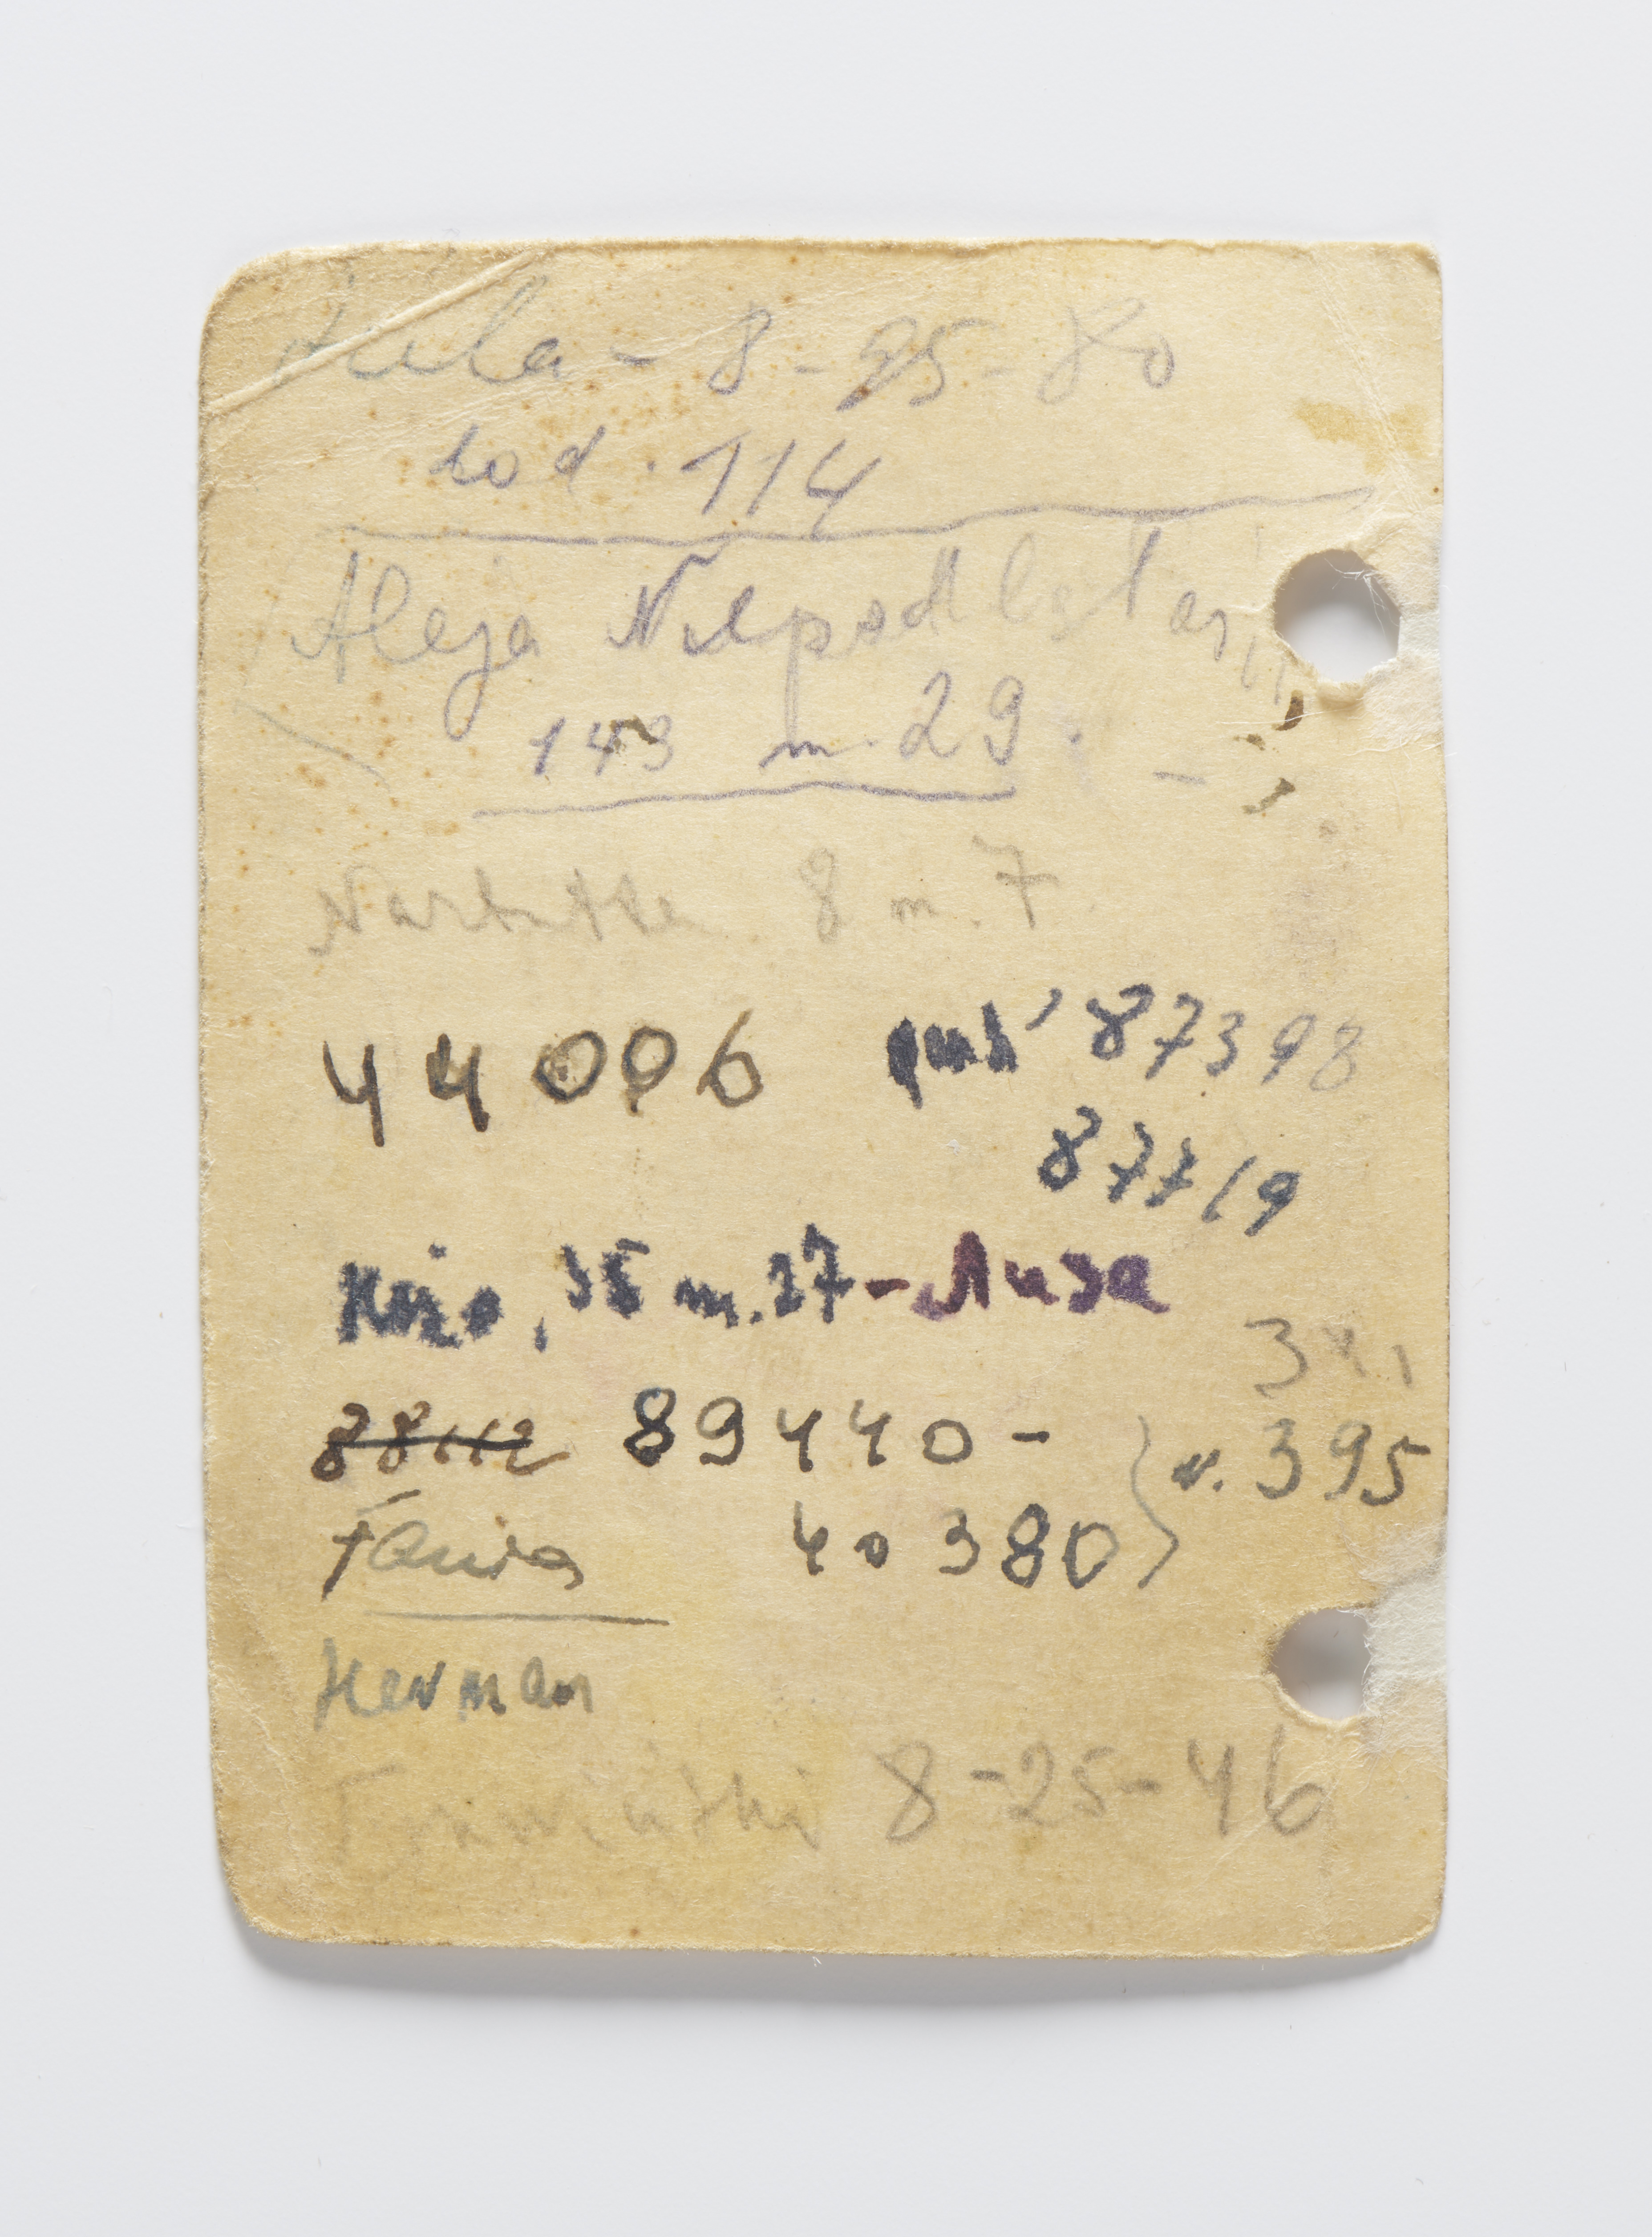 Lula - 8-95-80
dod. 114
Aleja Niepodległości
143 m. 29
Narbutta 8 m. 7
44006 87398
87719
35 m. 27 - Луза
88112 89440 -
w. 395
Fania 40380
Herman
8-25-46